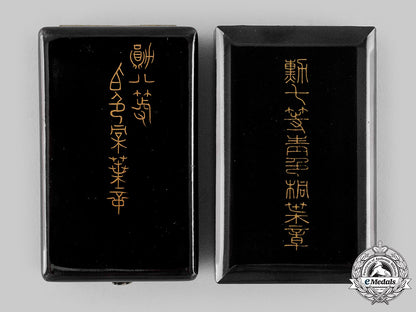 勛八等
白色桐葉章
勳七等青色桐葉章
eMedals